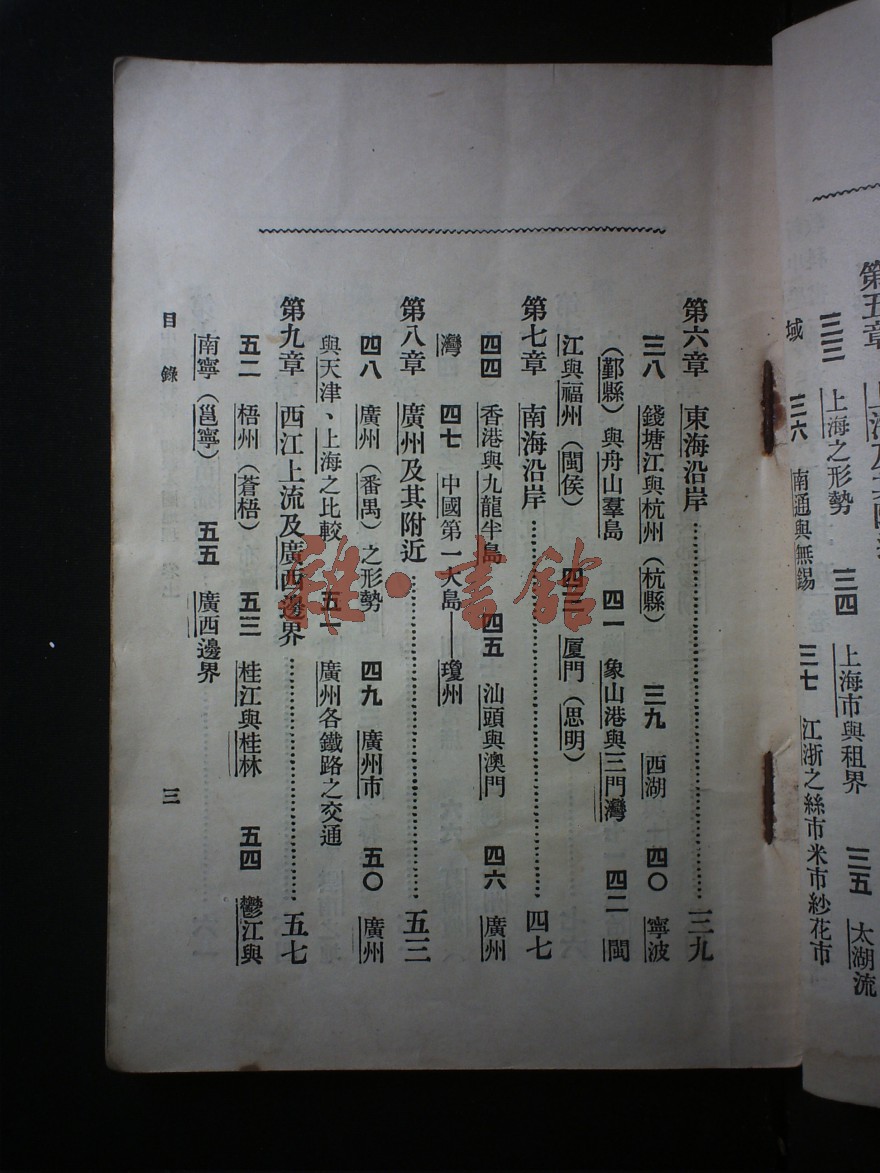 三三　上海之形勢　三四　上海市與租界　三五　太湖流
域　三六　南通與無錫　三七　江浙之絲市米市紗花市
第六章　東海沿岸……三九
三八　錢塘江與杭州（杭縣）　三九　西湖　四〇　寧波
（鄞縣）與舟山羣島　四一　象山港與三門灣　四二　閩
江與福州（閩侯）　四三　厦門（思明）
第七章　南海沿岸……四七
四四　香港與九龍半島　四五　汕頭與澳門　四六　廣州
灣　四七　中國第一大島——瓊州
第八章　廣州及其附近……五三
四八　廣州（番禺）之形勢　四九　廣州市　五〇　廣州
與天津、上海之比較　五一　廣州各鐵路之交通
第九章　西江上流及廣西邊界……五七
五二　梧州（蒼梧）　五三　桂江與桂林　五四　鬱江與
南寧（邕寧）　五五　廣西邊界
目錄　三
雜·書館